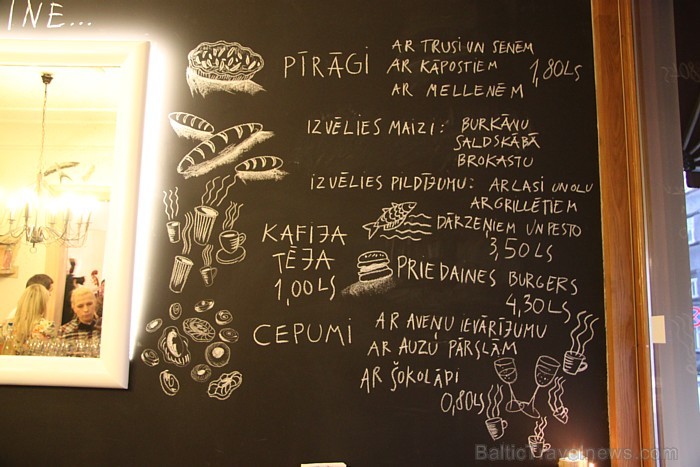 INE...
PĪRĀGI
AR TRUSI UN SENĒM
AR KĀPOSTIEM
AR MELLENĒM
1,80LS
IZVĒLIES MAIZI:
BURKĀNU
SALDSKĀBĀ
BROKASTU
IZVĒLIES PILDĪJUMU:
AR LASI UN OLU
AR GRILLĒTIEM
DĀRZEŅIEM UN PESTO
3,50LS
KAFIJA
TĒJA
1,00LS
PRIEDAINES BURGERS
4,30LS
CEPUMI
AR AVEŅU IEVĀRĪJUMU
AR AUZU PĀRSLĀM
AR ŠOKOLĀPI
0,80LS
BalticTravelnews.com